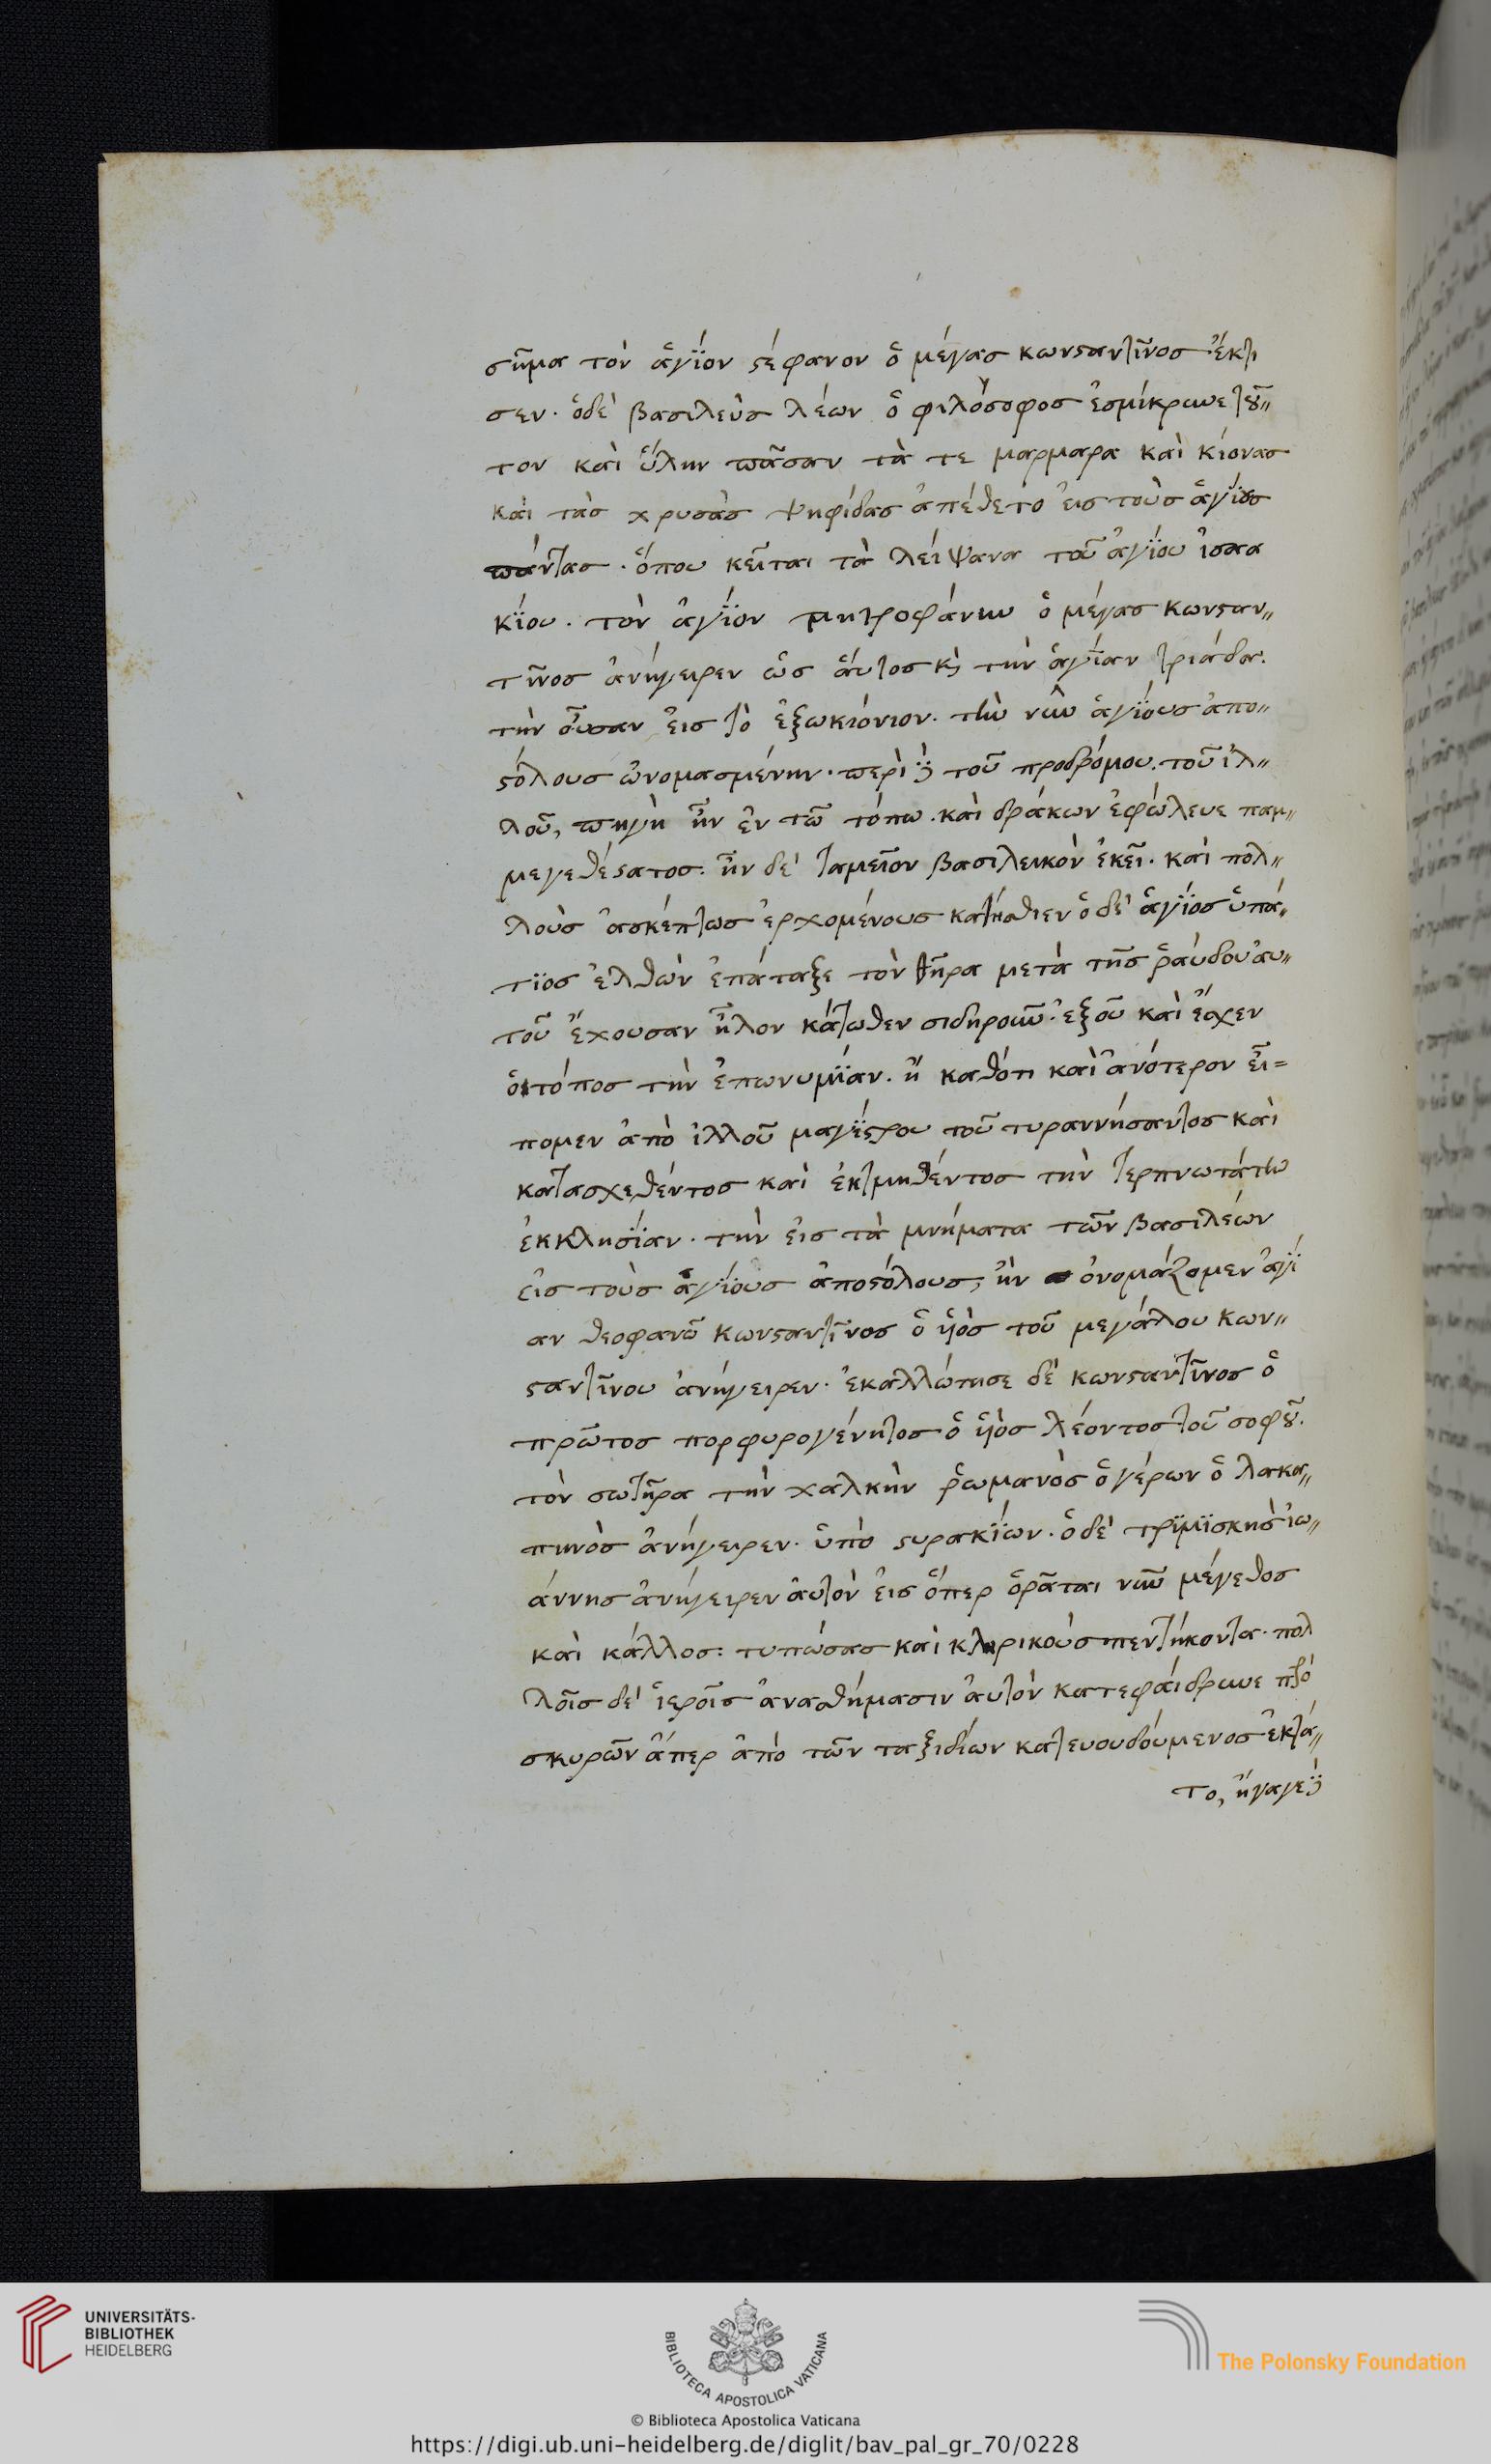 σῆμα τὸν ἅγϊον στέφανον ὁ μέγας κωνσταντῖνος ἔκτι
σεν. ὁδὲ βασιλεὺς λέων ὁ φιλόσοφος ἐσμίκρυνε τοῦ„
τον καὶ ὕλην πᾶσαν τὰ τε μαρμαρα καὶ κίονας
καὶ τὰς χρυσὰς ψηφίδας ἀπέθετο εἰς τοὺς ἁγίους
πάντας. ὅπου κεῖται τὰ λείψανα τοῦ ἁγίου ἰσαα
κίου. τὸν ἅγϊον μητροφάνην ὁ μέγας κωνσταν„
τῖνος ἀνήγειρεν ὡς ἅυτος κὶ τὴν ἁγίαν τριάδα.
τὴν οὖσαν εἰς τὸ ἐξωκιόνιον. τὴν νῦν ἁγϊους ἀπο„
στόλους ὠνομασμένην. περὶ δὲ τοῦ προδρόμου. τοῦ ἰλ„
λοῦ, πηγὴ ἦν ἐν τῶ τόπω. καὶ δράκων ἐφώλευε παμ„
μεγεθέστατος. ἦν δὲ ταμεῖον βασιλεικὸν ἐκεῖ. καὶ πολ„
λοὺς ἀσκέπτως ἐρχομένους κατήσθιεν ὁ δὲ ἅγϊος ὑπά„
τϊος ἐλθὼν ἐπάταξε τὸν θῆρα μετὰ τῆς ῥάυδου ἀυ„
τοῦ ἔχουσαν ἧλον κάτωθεν σιδηροῦν. ἐξοῦ καὶ ἔσχεν
ὁ τόπος τὴν ἐπωνυμΐαν. ἢ καθότι καὶ ἀνότερον εἶ=
πομεν ἀπὸ ἰλλοῦ μαγΐστρου τοῦ τυραννήσαντος καὶ
κατασχεθέντος καὶ ἐκτμηθέντος τὴν τερπνωτάτην
ἐκκλησΐαν. τὴν εἰς τὰ μνήματα τῶν βασιλεών
εἰς τοὺς ἁγίους ἀποστόλους, ἣν ὀνομάζομεν ἁγΐ
αν θεοφανῶ κωνσταντῖνος ὁ ὑιὸς τοῦ μεγάλου κων„
σταντῖνου ἀνήγειρεν. ἐκαλλώπισε δὲ κωνσταντῖνος ὁ
πρῶτος πορφυρογέννητος ὁ ὑιὸς λέοντος τοῦ σοφοῦ.
τὸν σωτῆρα τὴν χαλκὴν ῥωμανὸς ὁ γέρων ὁ λακα„
πηνὸς ἀνήγειρεν. ὑπὸ στυρακΐων. ὁ δὲ τζϊμϊσκῆς ἰω„
άννης ἀνήγειρεν ἀυτὸν εἰς ὅπερ ὁρᾶται νῦν μέγεθος
καὶ κάλλος: τυπώσας καὶ κληρικοὺς πεντήκοντα. πολ
λοῖς δὲ ἱεροῖς ἀναθήμασιν ἀυτὸν κατεφάιδρυνε πλό
σκυρῶν ἅπερ ἀπὸ τῶν ταξιδίων κατευουδούμενος ἐκτά„
το, ἤγαγε δὲ
UNIVERSITÄTS-
BIBLIOTHEK
HEIDELBERG
BIBLIOTECA APOSTOLICA VATICANA
The Polonsky Foundation
© Biblioteca Apostolica Vaticana
https://digi.ub.uni-heidelberg.de/diglit/bav_pal_gr_70/0228